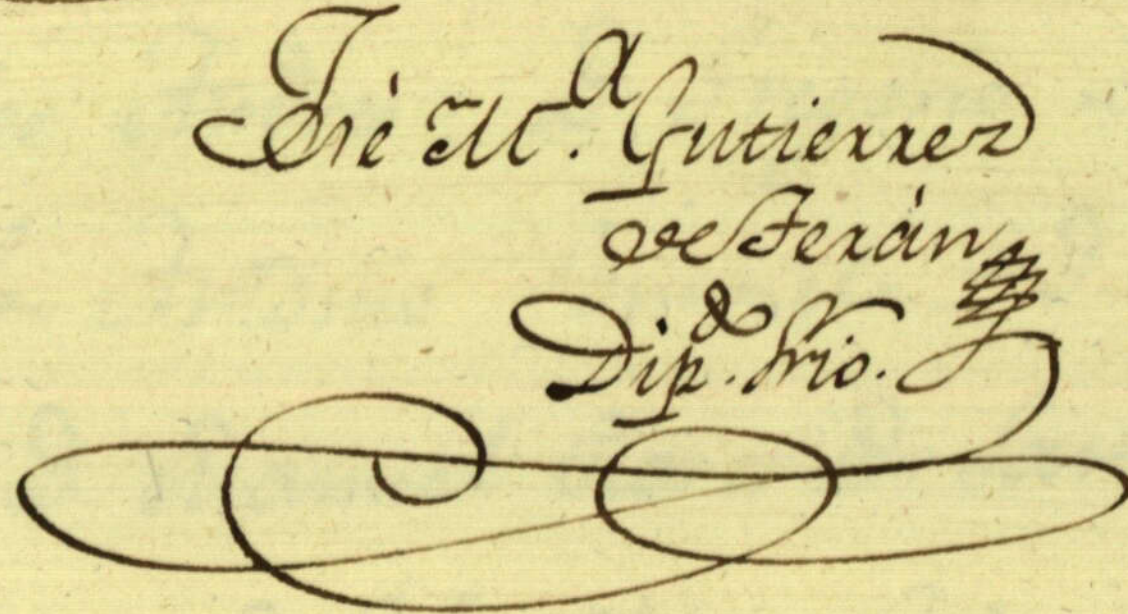 Jsé M.ª Gutierrez
de Terán
Dip.do Srio.